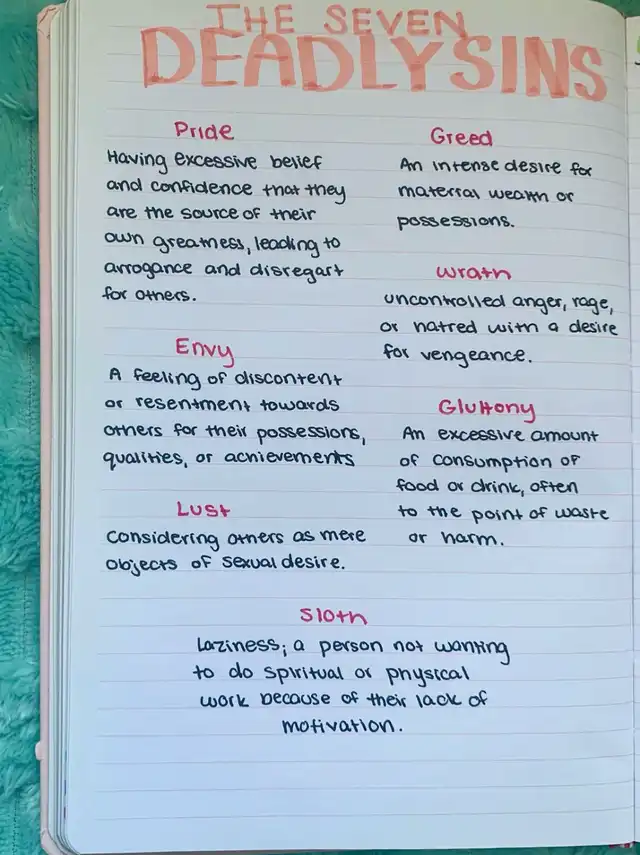 THE SEVEN
DEADLY SINS
Pride
Having excessive belief
and confidence that they
are the source of their
own greatness, leading to
arrogance and disregart
for others.
Envy
A feeling of discontent
or resentment towards
others for their possessions,
qualities, or achievements
Lust
Considering others as mere
objects of sexual desire.
Greed
An intense desire for
material wealth or
possessions.
Wrath
uncontrolled anger, rage,
or hatred with a desire
for vengeance.
Gluttony
An excessive amount
of consumption of
food or drink, often
to the point of waste
or harm.
Sloth
Laziness; a person not wanting
to do spiritual or physical
work because of their lack of
motivation.